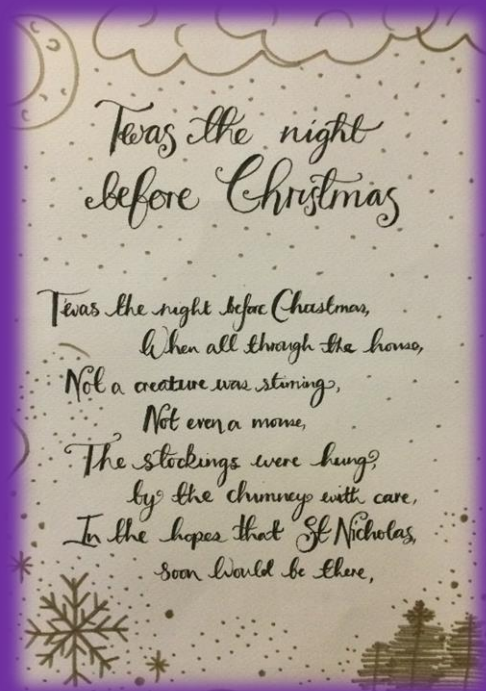 Twas the night
before Christmas
Twas the night before Christmas,
When all through the house,
Not a creature was stirring,
Not even a mouse,
The stockings were hung,
by the chimney with care,
In the hopes that St Nicholas,
soon would be there,